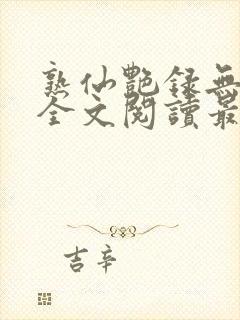 熟仙艷録無
全文閱讀最
吉辛